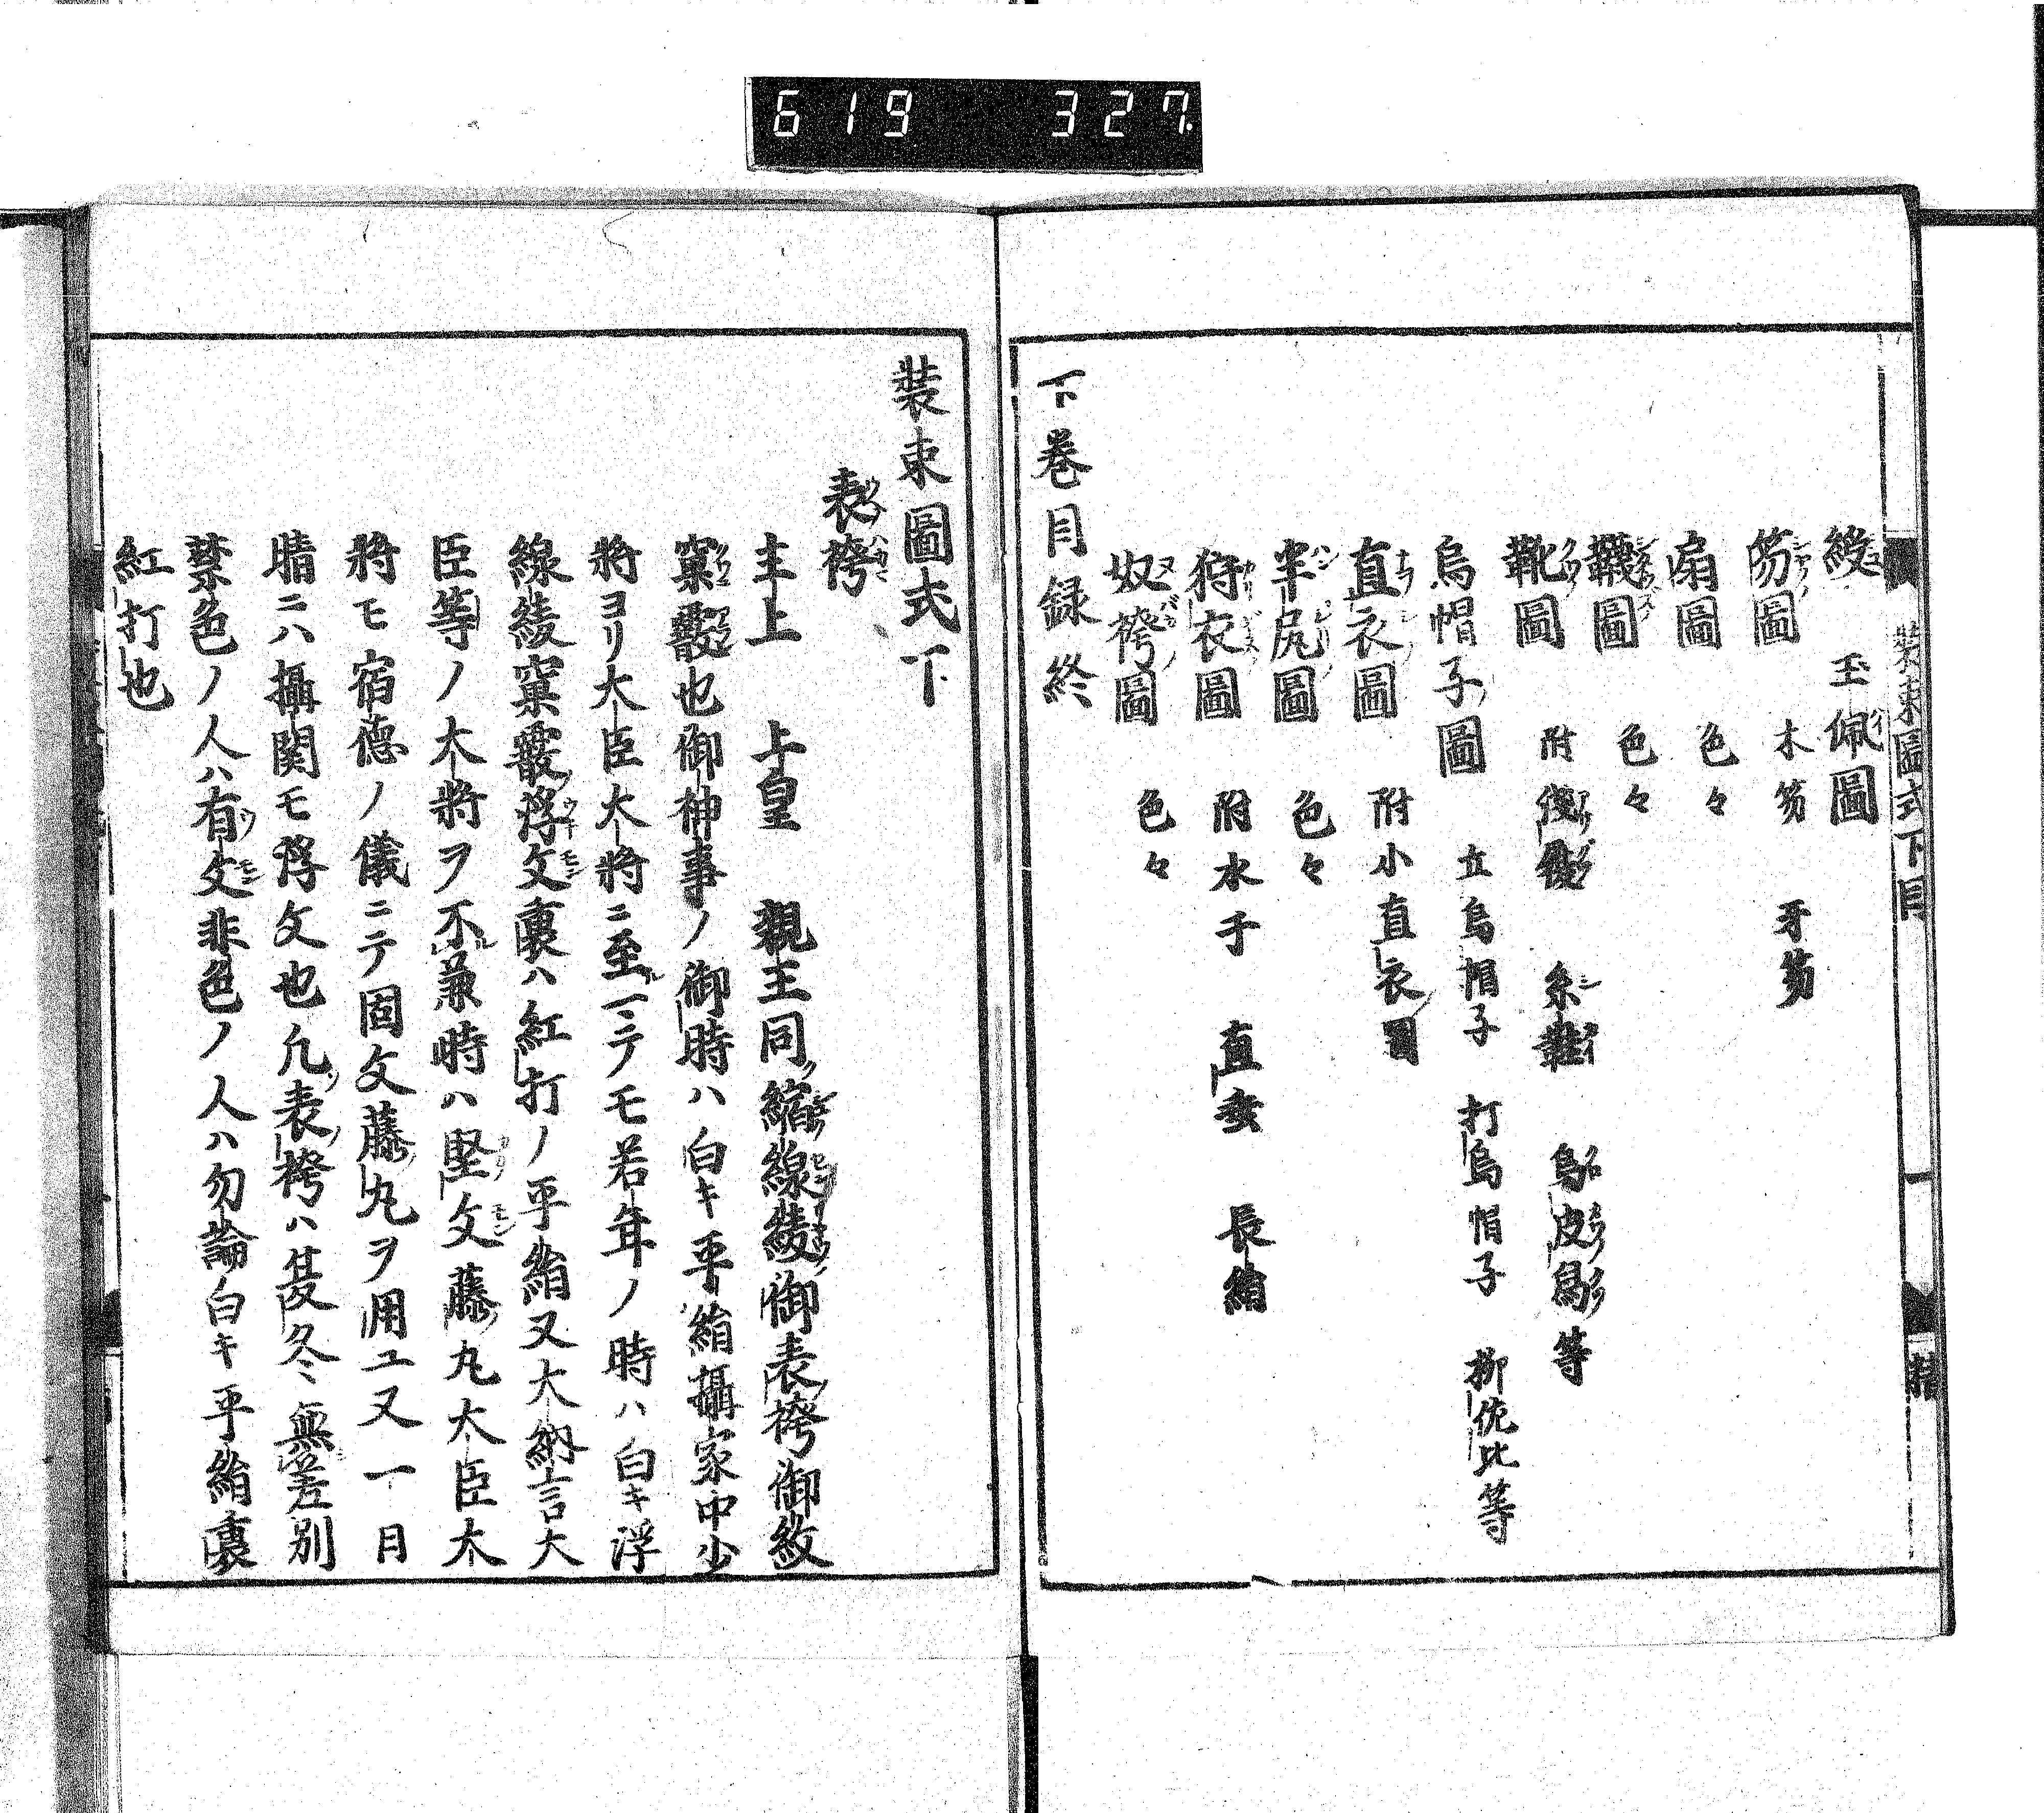 619 327
装束圖式下目
一
綬 玉佩圖
笏圖 木笏 牙笏
扇圖 色々
襪圖 色々
靴圖 附淺履 糸鞋 烏皮舃等
烏帽子圖 立烏帽子 打烏帽子 柳佐比等
直衣圖 附小直衣圖
半尻圖 色々
狩衣圖 附水干 直垂 長絹
奴袴圖 色々
下巻目録終
装束圖式下
表袴
主上 上皇 親王同縮線綾御表袴御紋
窠霰也御神事ノ御時ハ白キ平絹攝家中少
將ヨリ大臣大將ニ至ニテモ若年ノ時ハ白キ浮
線綾窠霰浮文裏ハ紅打ノ平絹又大納言大
臣等ノ大將ヲ不兼時ハ堅文藤丸大臣大
將モ宿德ノ儀ニテ固文藤丸ヲ用ユ又一日
晴ニハ攝関モ浮文也凢表袴ハ夏冬ニ無差別
禁色ノ人ハ有文非色ノ人ハ勿論白キ平絹裏
紅打也